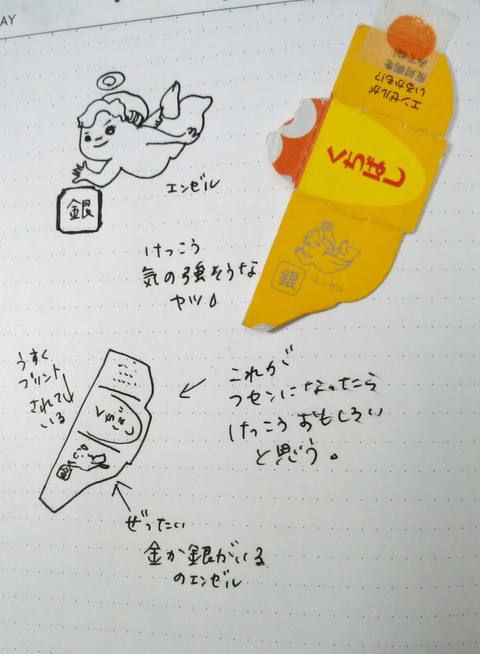 AY
エンゼルが
いるかも!?
反対側を
みてね!
くちばし
銀
エンゼル
銀
エンゼル
けっこう
気の強そうな
ヤツ。
うすく
プリント
されて
いる
くちばし
銀
これが
フセンになったら
けっこうおもしろい
と思う。
ぜったい
金か銀がいる
のエンゼル